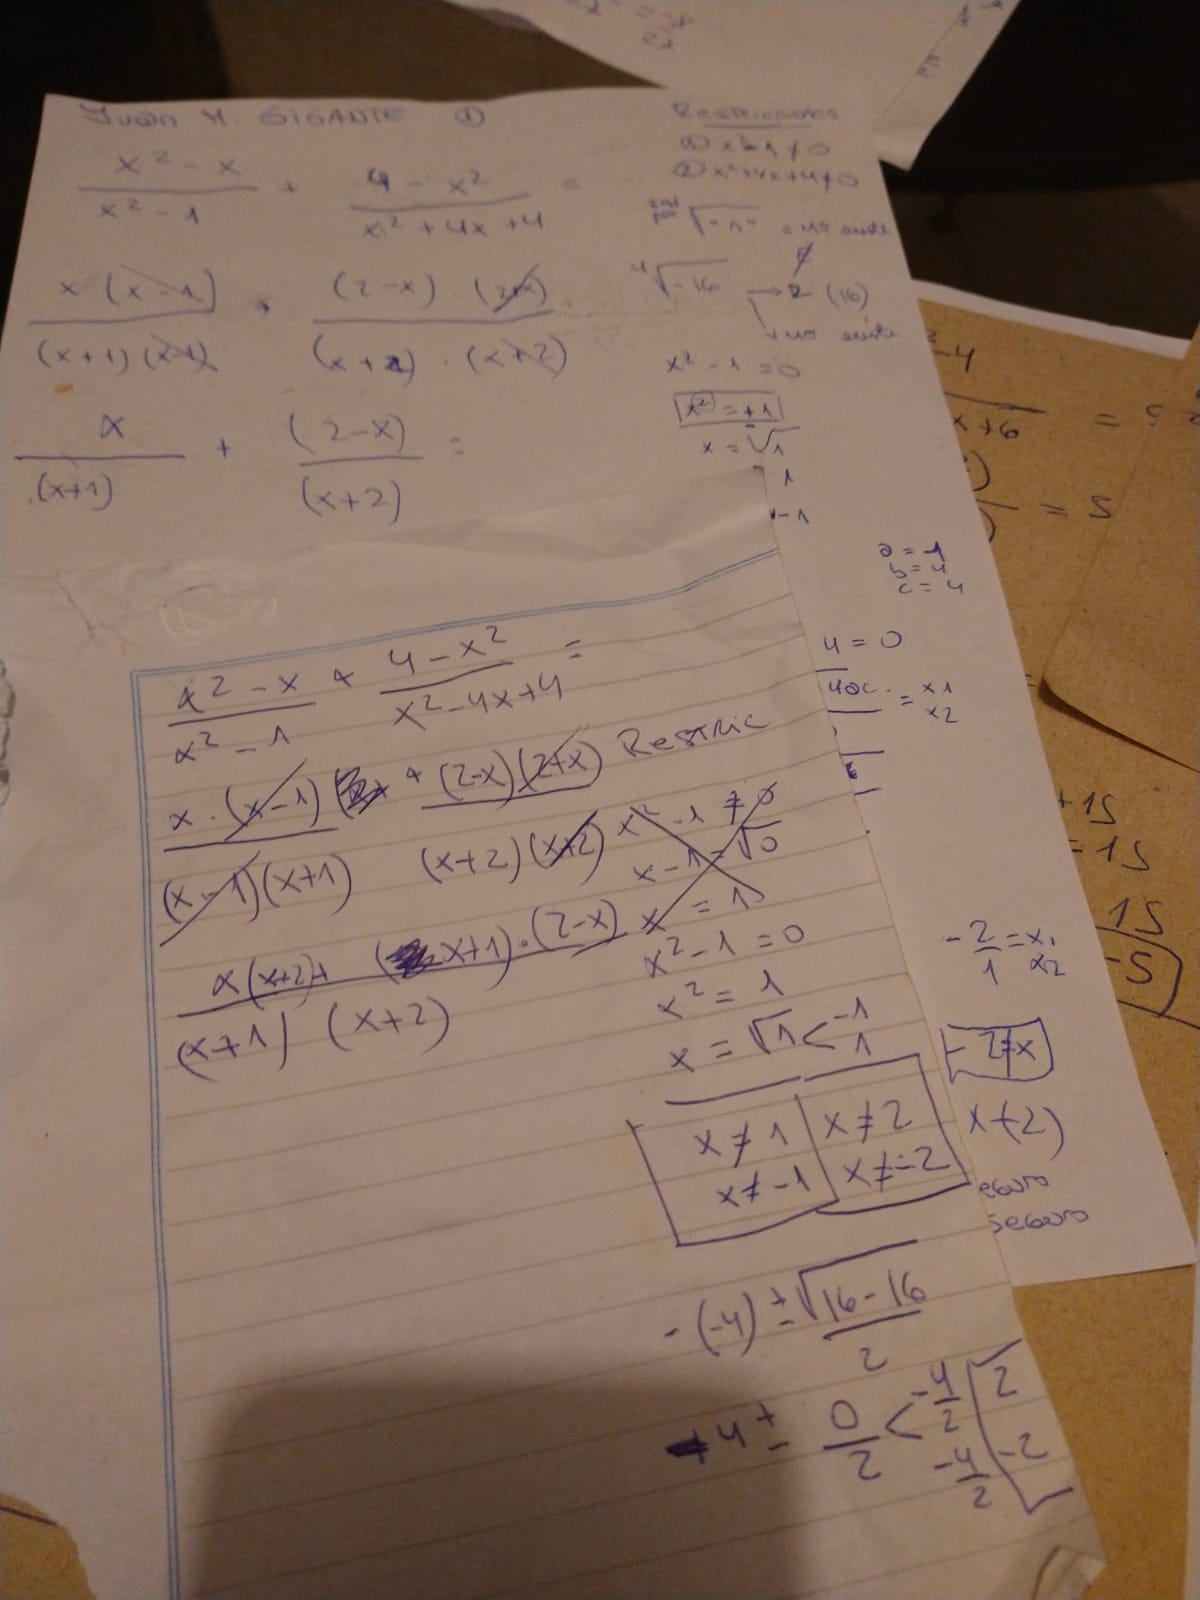 Juan M. GIGANTE ①
x² - x / x² - 1 + 4 - x² / x² + 4x + 4 =
x (x-1) / (x+1)(x-1) + (2-x) . (2+x) / (x+2) . (x+2)
x / (x+1) + (2-x) / (x+2) =
Restricciones
① x²-1 ≠ 0
② x²+4x+4≠0
√-n = no existe
⁴√-16 → 2 (16)
no existe
x² - 1 = 0
x² = +1
x = ²√1
1
-1
a = 1
b = 4
c = 4
4 = 0
4ac. = x1
x2
- 2/1 = x1
x2
-2≠x
x+2)
seguro
x² - x / x² - 1 + 4 - x² / x² - 4x + 4 =
x . (x-1) / (x-1)(x+1) + (2-x)(2+x) / (x+2)(x+2)
x(x+2)+ (x+1).(2-x) / (x+1) (x+2)
Restric
x² - 1 ≠ 0
x - 1 = √0
x = 1
x² - 1 = 0
x² = 1
x = √1 < -1
1
x ≠ 1 x ≠ 2
x ≠ -1 x ≠ -2
- (-4) ± √16 - 16 / 2
4 ± 0/2 < -4/2 2
-4/2 -2
-4
x+6 = 
= 5
+15
= 15
15
-5